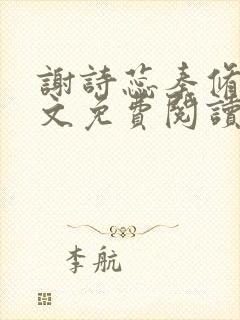 謝詩蕊秦脩
文免費閱讀
李航